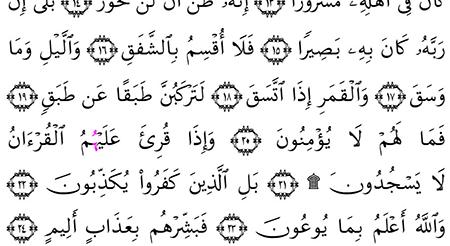 كَانَ فِىٓ أَهْلِهِۦ مَسْرُورًا ﴿١٣﴾ إِنَّهُۥ ظَنَّ أَن لَّن يَحُورَ ﴿١٤﴾ بَلَىٰٓ إِنَّ
رَبَّهُۥ كَانَ بِهِۦ بَصِيرًا ﴿١٥﴾ فَلَآ أُقْسِمُ بِٱلشَّفَقِ ﴿١٦﴾ وَٱلَّيْلِ وَمَا
وَسَقَ ﴿١٧﴾ وَٱلْقَمَرِ إِذَا ٱتَّسَقَ ﴿١٨﴾ لَتَرْكَبُنَّ طَبَقًا عَن طَبَقٍ ﴿١٩﴾
فَمَا لَهُمْ لَا يُؤْمِنُونَ ﴿٢٠﴾ وَإِذَا قُرِئَ عَلَيْهِمُ ٱلْقُرْءَانُ
لَا يَسْجُدُونَ ۩ ﴿٢١﴾ بَلِ ٱلَّذِينَ كَفَرُوا۟ يُكَذِّبُونَ ﴿٢٢﴾
وَٱللَّهُ أَعْلَمُ بِمَا يُوعُونَ ﴿٢٣﴾ فَبَشِّرْهُم بِعَذَابٍ أَلِيمٍ ﴿٢٤﴾